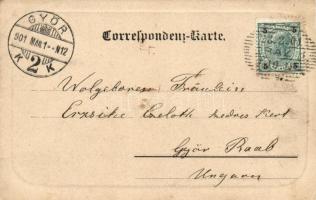 GYŐR
901 MÁR. 1 - N12
K 2 K
Correspondenz-Karte.
5 5
Wolgeborenem Fräulein
Erzsike Czeloth Medves kert
Győr Raab
Ungarn